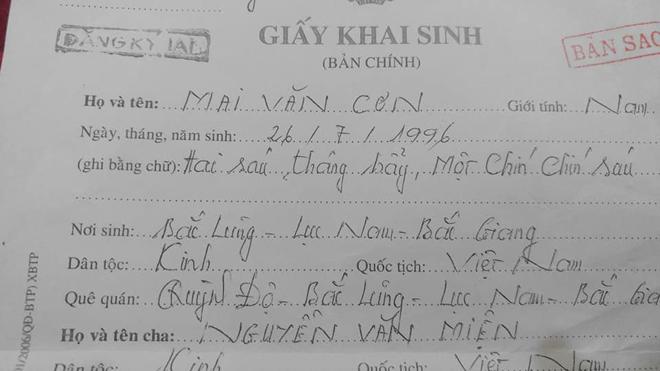 ĐĂNG KÝ LẠI
GIẤY KHAI SINH
BẢN SAO
(BẢN CHÍNH)
Họ và tên: MAI VĂN CƠN Giới tính: Nam
Ngày, tháng, năm sinh: 26 / 7 / 1996
(ghi bằng chữ): Hai sáu, tháng bẩy, Một Chín Chín sáu
Nơi sinh: Bắc Lũng - Lục Nam - Bắc Giang
Dân tộc: Kinh Quốc tịch: Việt Nam
Quê quán: Quỳnh Độ - Bắc Lũng - Lục Nam - Bắc Gia
Họ và tên cha: NGUYỄN VĂN MIỀN
Dân tộc: Kinh Quốc tịch: Việt Nam
/2006/QĐ-BTP) XBTP